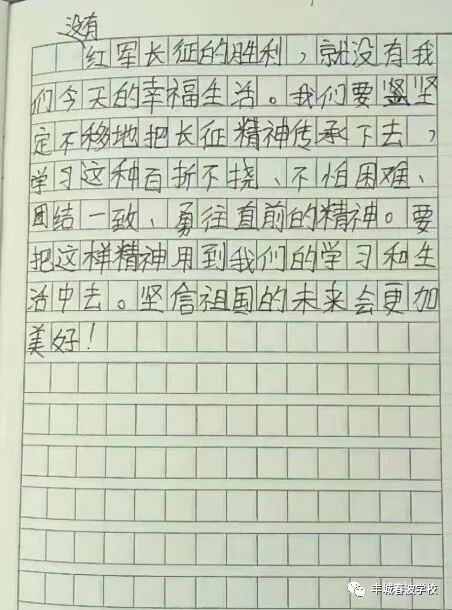 没有
红军长征的胜利，就没有我
们今天的幸福生活。我们要坚
定不移地把长征精神传承下去，
学习这种百折不挠、不怕困难、
团结一致、勇往直前的精神。要
把这样精神用到我们的学习和生
活中去。坚信祖国的未来会更加
美好！
丰城春波学校